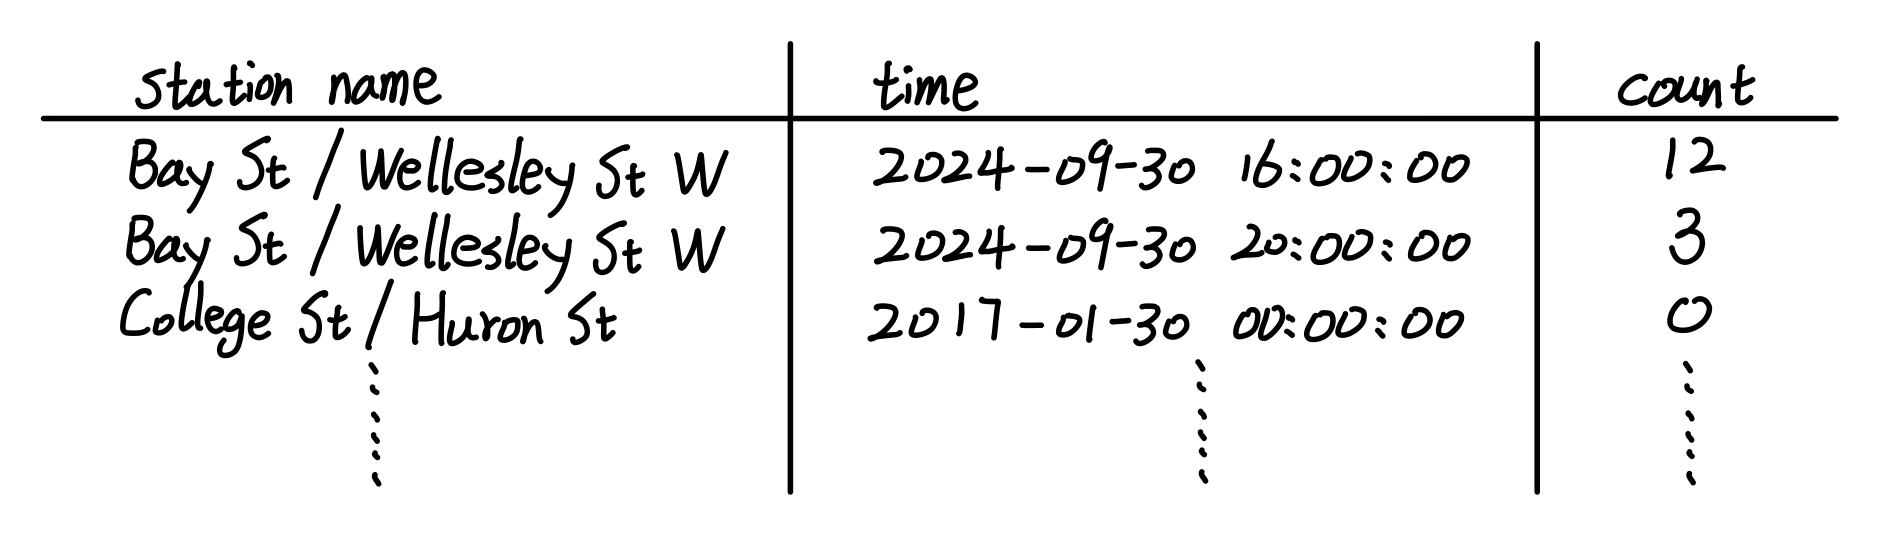 station name time count
Bay St / Wellesley St W 2024-09-30 16:00:00 12
Bay St / Wellesley St W 2024-09-30 20:00:00 3
College St / Huron St 2017-01-30 00:00:00 0